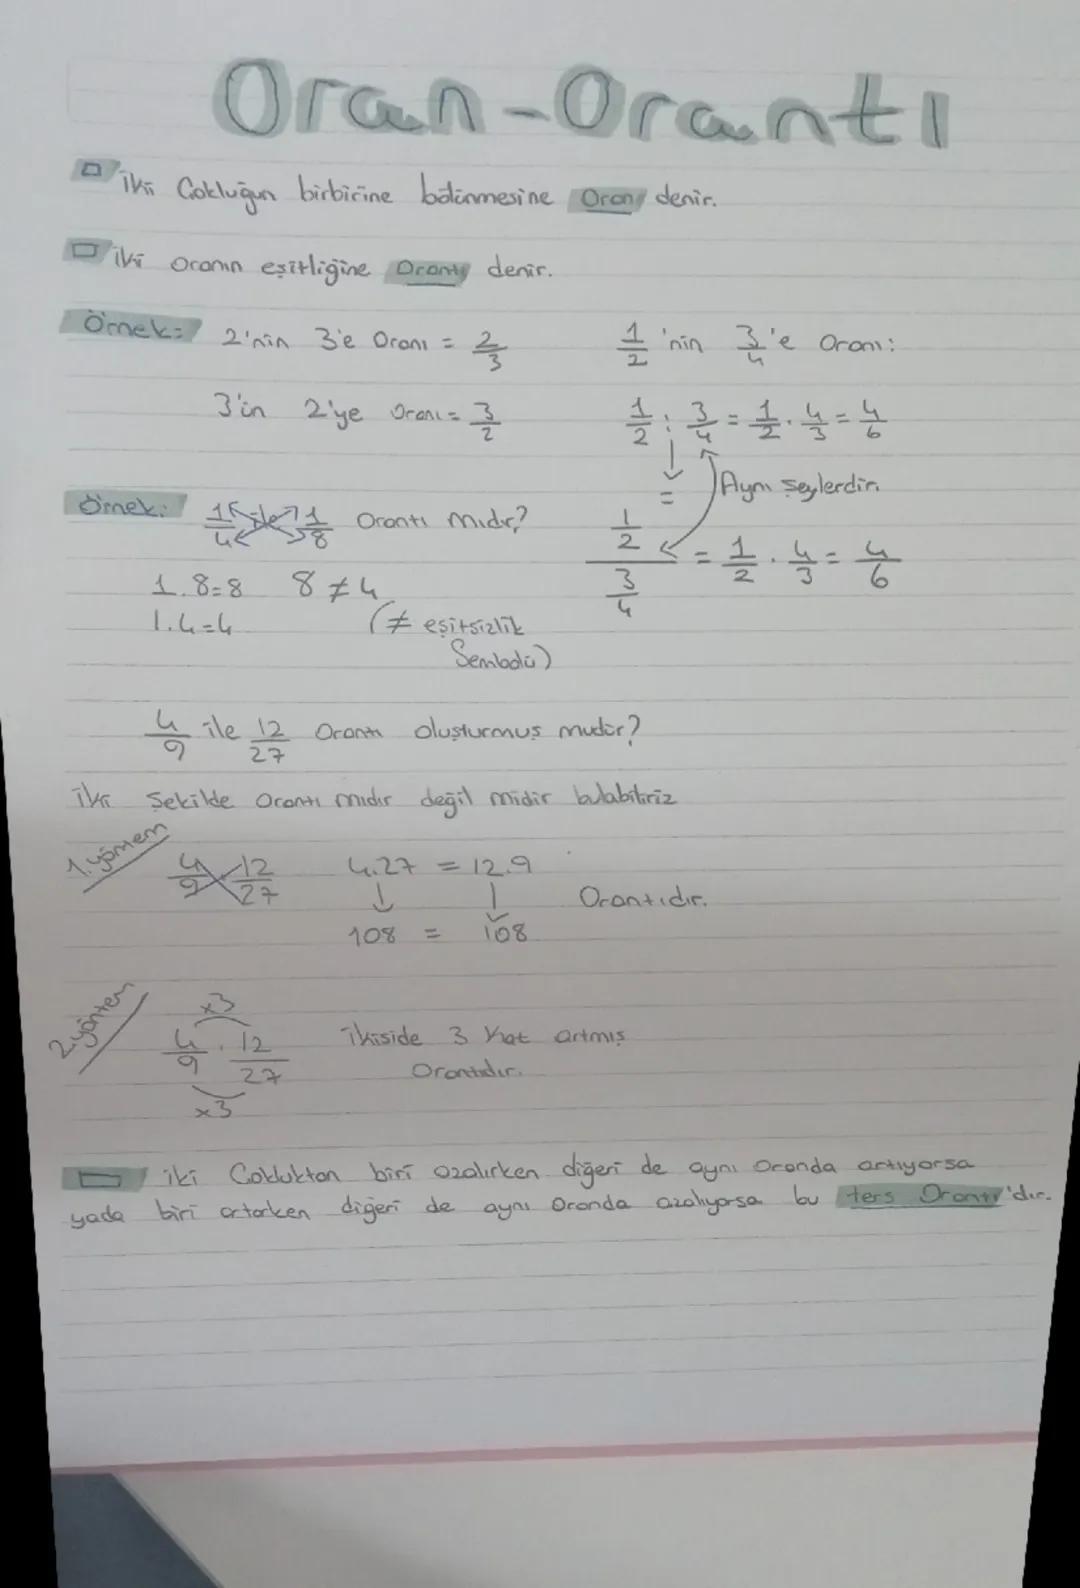 Oran-Orantı
İki Çokluğun birbirine bölünmesine Oran denir.
İki oranın eşitliğine Orantı denir.
Örnek: 2'nin 3'e Oranı = 2/3
3'ün 2'ye Oranı = 3/2
1/2 'nin 3/4 'e Oranı:
1/2 : 3/4 = 1/2 . 4/3 = 4/6
=
Aynı Şeylerdir.
1/2 / 3/4 = 1/2 . 4/3 = 4/6
Örnek: 1/4 ile 1/8 Orantı mıdır?
1.8=8 8≠4
1.4=4 (≠ eşitsizlik
Sembolü)
4/9 ile 12/27 Orantı oluşturmuş mudur?
İki Şekilde orantı mıdır değil midir bulabiliriz
1. yöntem
4/9 12/27 4.27 = 12.9
108 = 108
Orantıdır.
2. yöntem
x3
4/9 . 12/27 ikiside 3 Kat artmış
Orantıdır.
x3
iki Çokluktan biri azalırken diğeri de aynı Oranda artıyorsa
yada biri artarken diğeri de aynı Oranda azalıyorsa bu ters Orantı'dır.